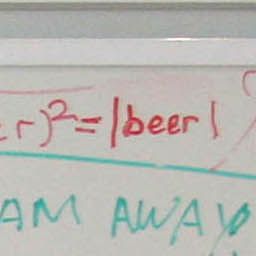 r)²=|beer|
AM AWAY